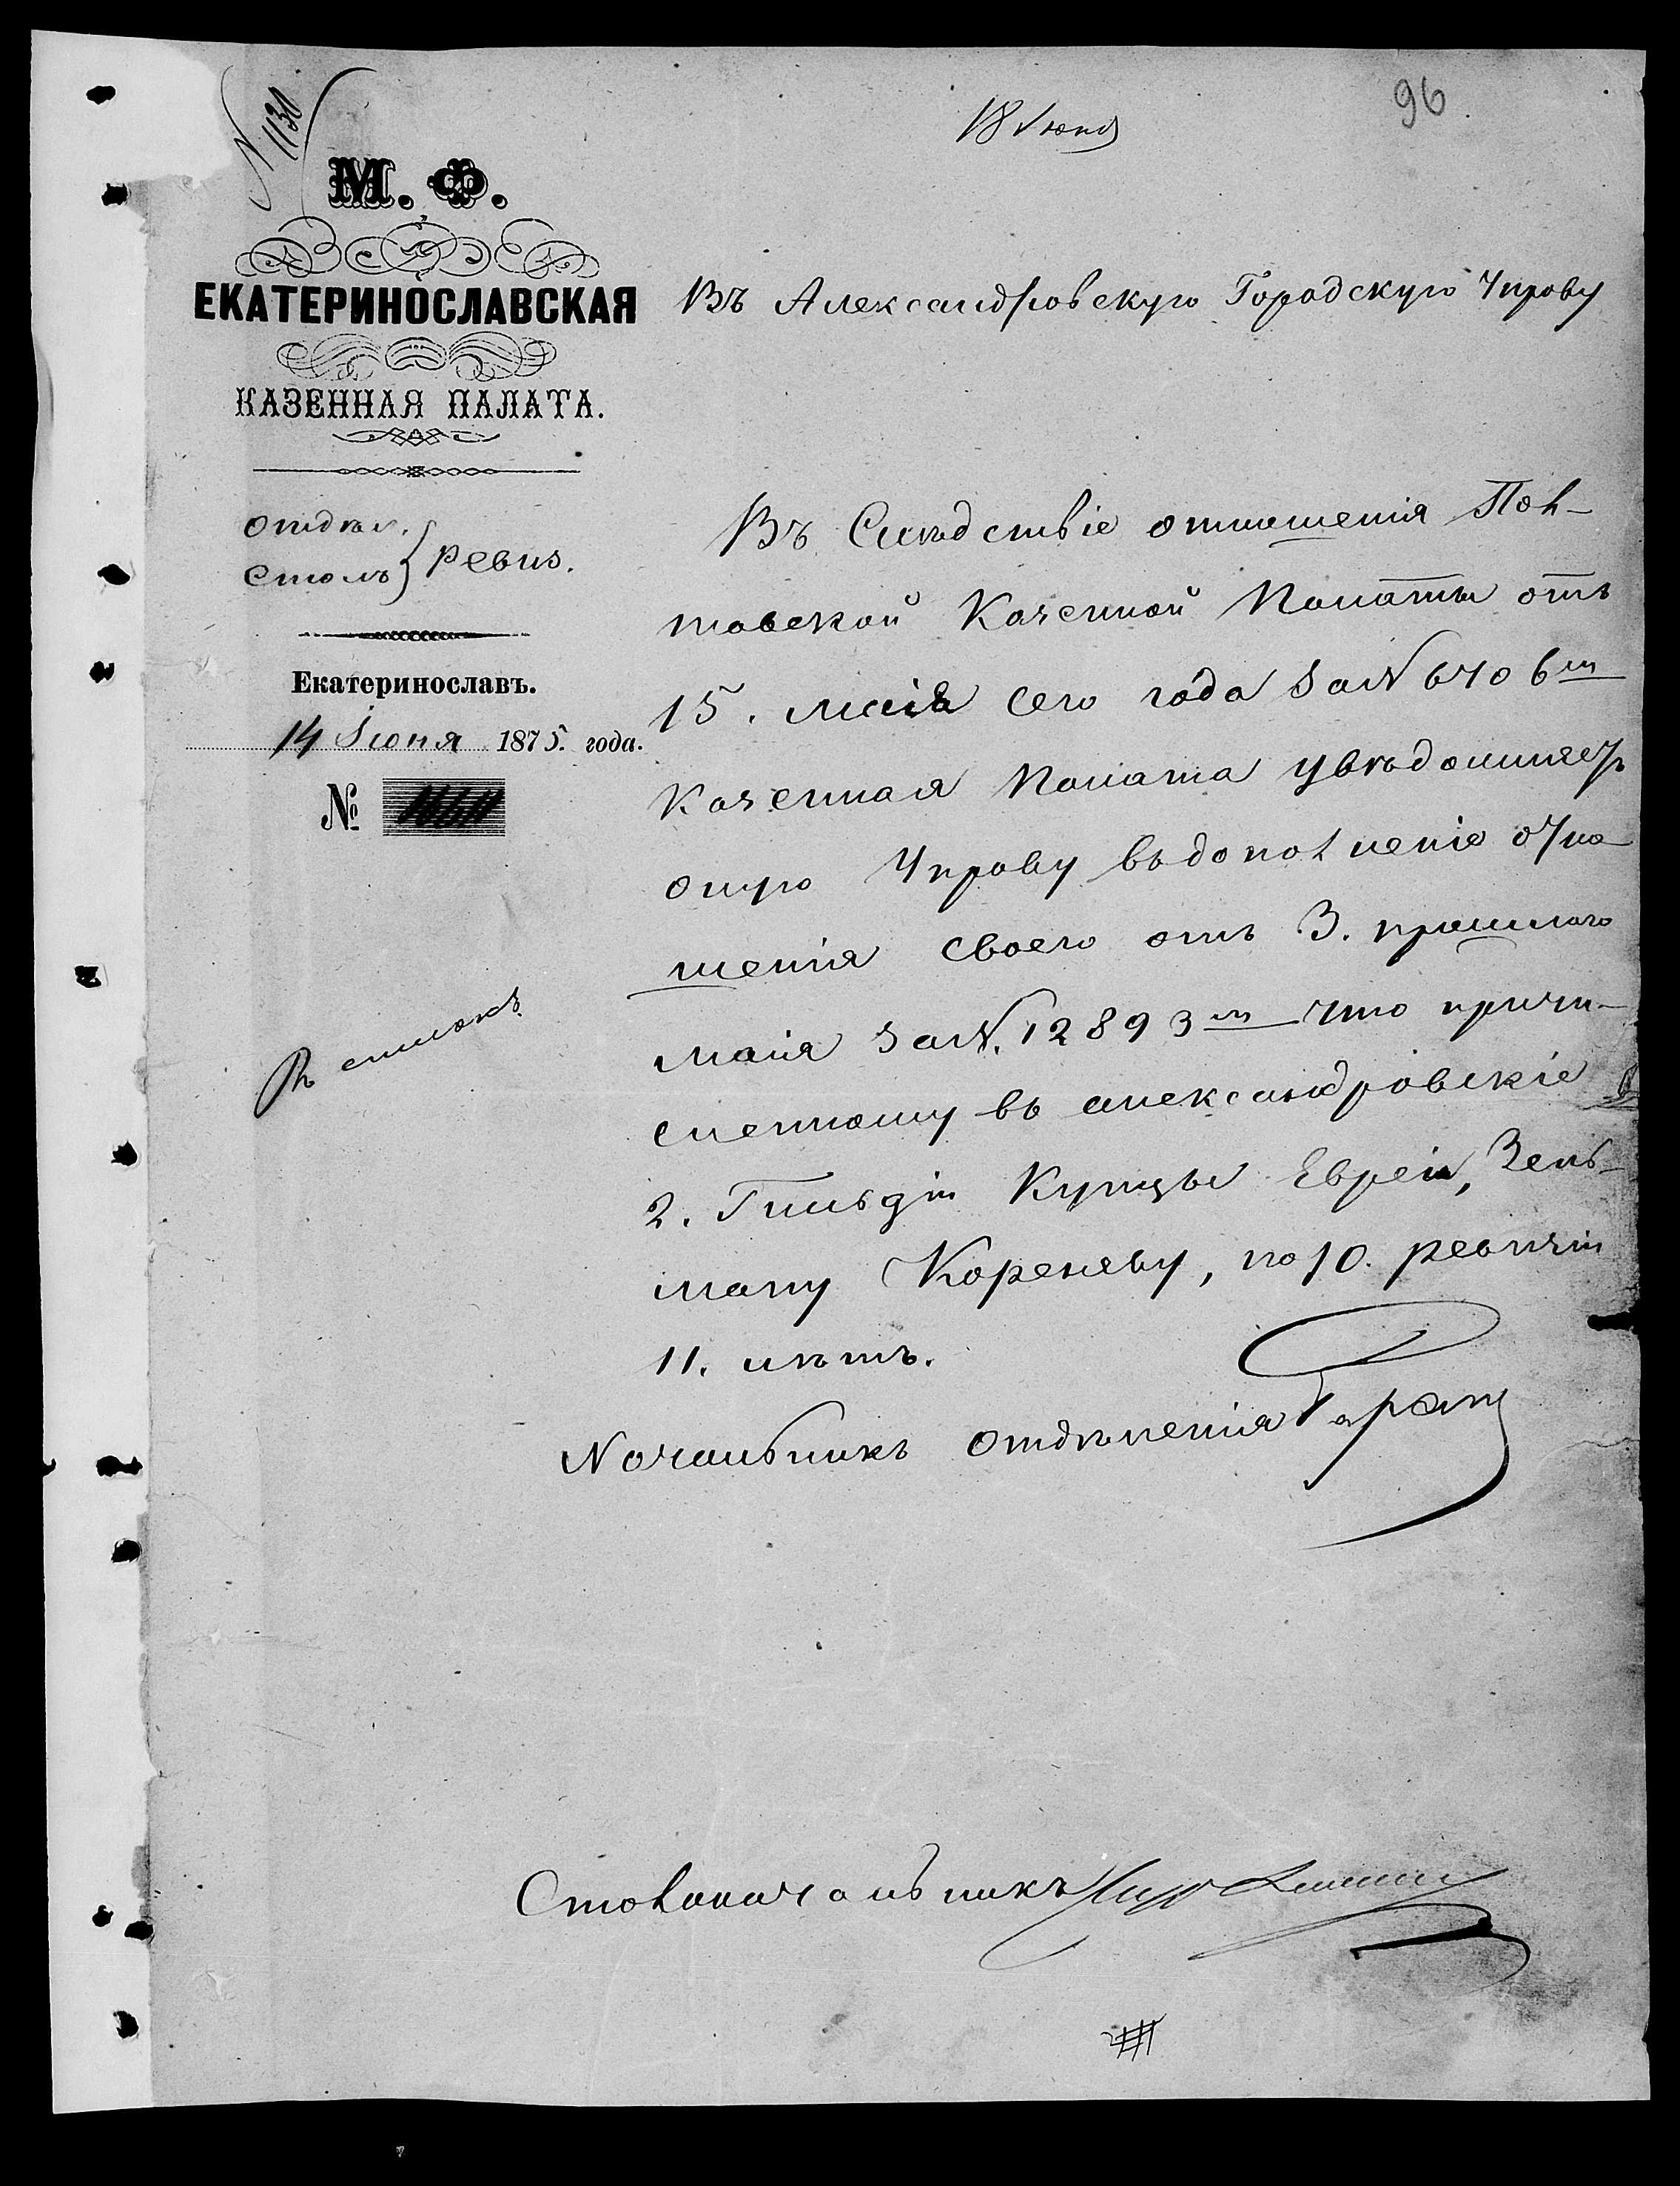 N 1130
96
18 Июня
М. Ф.
ЕКАТЕРИНОСЛАВСКАЯ
КАЗЕННАЯ ПАЛАТА.
Отдѣл.
Столъ } Ревиз.
Екатеринославъ.
14 Іюня 1875. года.
№
Въ Александровскую Городскую Управу
Въ Слѣдствіе отношенія Пол-
тавской Казенной Палаты отъ
15. маія сего года за N 6406 m
Казенная Палата увѣдомляетъ
оную Управу въ дополненіе отно
шенія своего отъ 3. прошлаго
маія за N. 12893 m что причи-
сленному въ александровскіе
2. Гильдіи Купцы Еврею, Зель-
ману Кореневу, по 10. ревизіи
11. лѣтъ.
Начальникъ Отдѣленія
Столоначальникъ